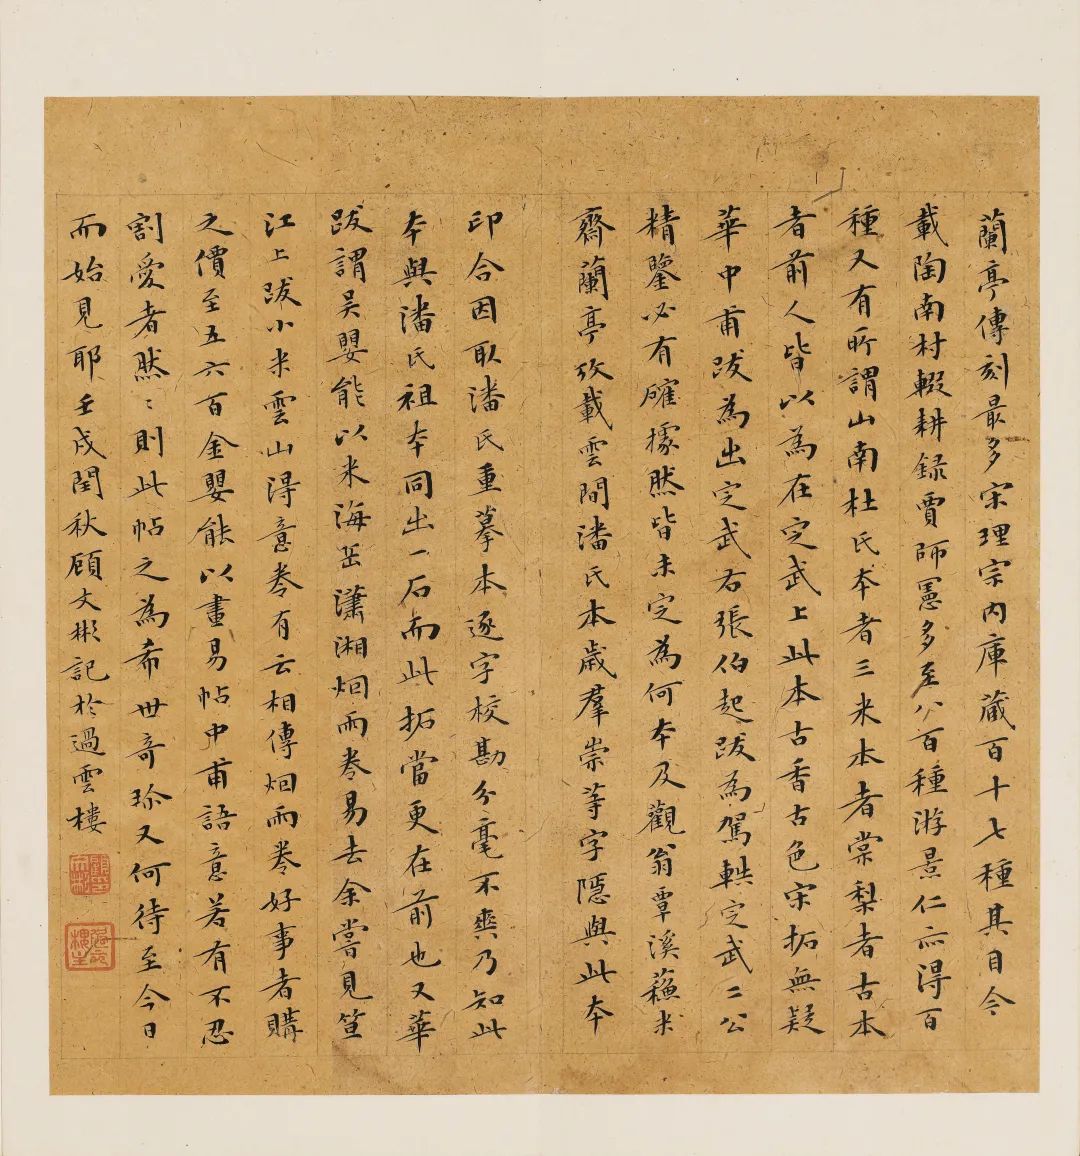 蘭亭傳刻最多宋理宗內庫藏百十七種其目今
載陶南村輟耕録賈師憲多至八百種游景仁亦得百
種又有所謂山南杜氏本者三米本者棠梨者古本
者前人皆以為在定武上此本古香古色宋拓無疑
華中甫跋為出定武右張伯起跋為駕軼定武二公
精鑒必有確據然皆未定為何本及觀翁覃溪蘓米
齋蘭亭攷載雲間潘氏本歲羣崇等字隱與此本
印合因取潘氏重摹本逐字校勘分毫不爽乃知此
本與潘氏祖本同出一石而此拓當更在前也又華
跋謂吴嬰能以米海岳瀟湘烟雨卷易去余嘗見笪
江上跋小米雲山得意卷有云相傳烟雨卷好事者購
之價至五六百金嬰能以畫易帖中甫語意若有不忍
割愛者然〻則此帖之為希世奇珎又何待至今日
而始見耶壬戌閏秋顧文彬記於過雲樓
顧文彬
過雲樓主